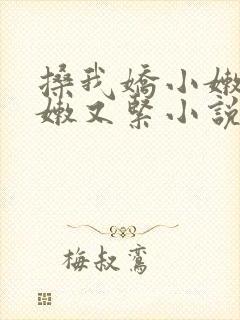 搡我嬌小嫩
嫩又緊小說
梅叔鸞